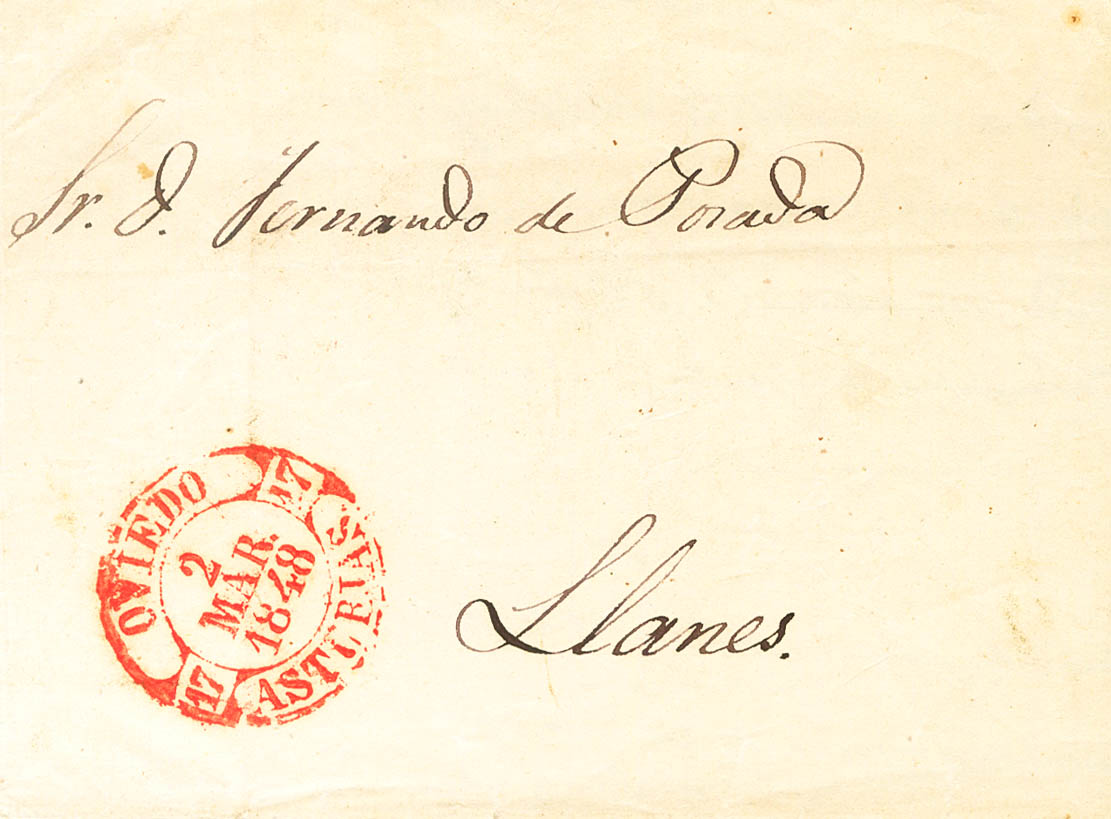 Sr. D. Fernando de Posada
Llanes.
OVIEDO
17
ASTURIAS
17
2
MAR.
1848